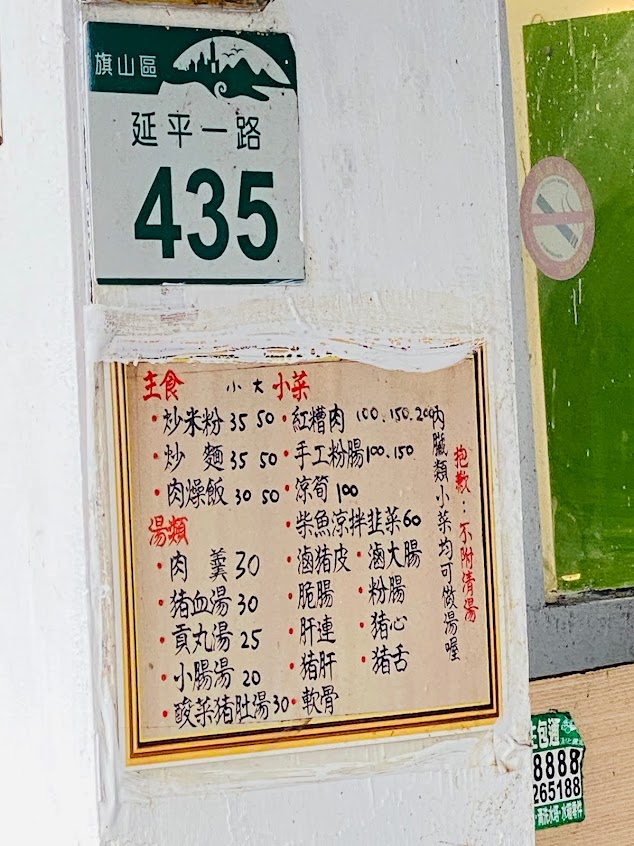 旗山區
延平一路
435
主食 小 大
炒米粉 35 50
炒麵 35 50
肉燥飯 30 50
湯類
肉羹 30
豬血湯 30
貢丸湯 25
小腸湯 20
酸菜豬肚湯 30
小菜
紅糟肉 100.150.200
手工粉腸 100.150
涼筍 100
柴魚涼拌韭菜 60
滷豬皮 滷大腸
脆腸 粉腸
肝連 豬心
豬肝 豬舌
軟骨
內臟類小菜均可做湯喔
抱歉：不附清湯
包通
8888
265188